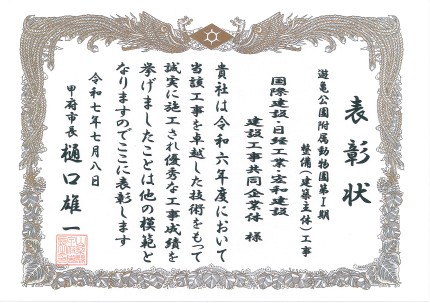 表彰状
遊亀公園附属動物園第Ⅰ期
整備(建築主体)工事
国際建設・日経工業・宏和建設
建設工事共同企業体 様
貴社は令和六年度において
当該工事を卓越した技術をもって
誠実に施工され優秀な工事成績を
挙げましたことは他の模範と
なりますのでここに表彰します
令和七年七月八日
甲府市長 樋口雄一